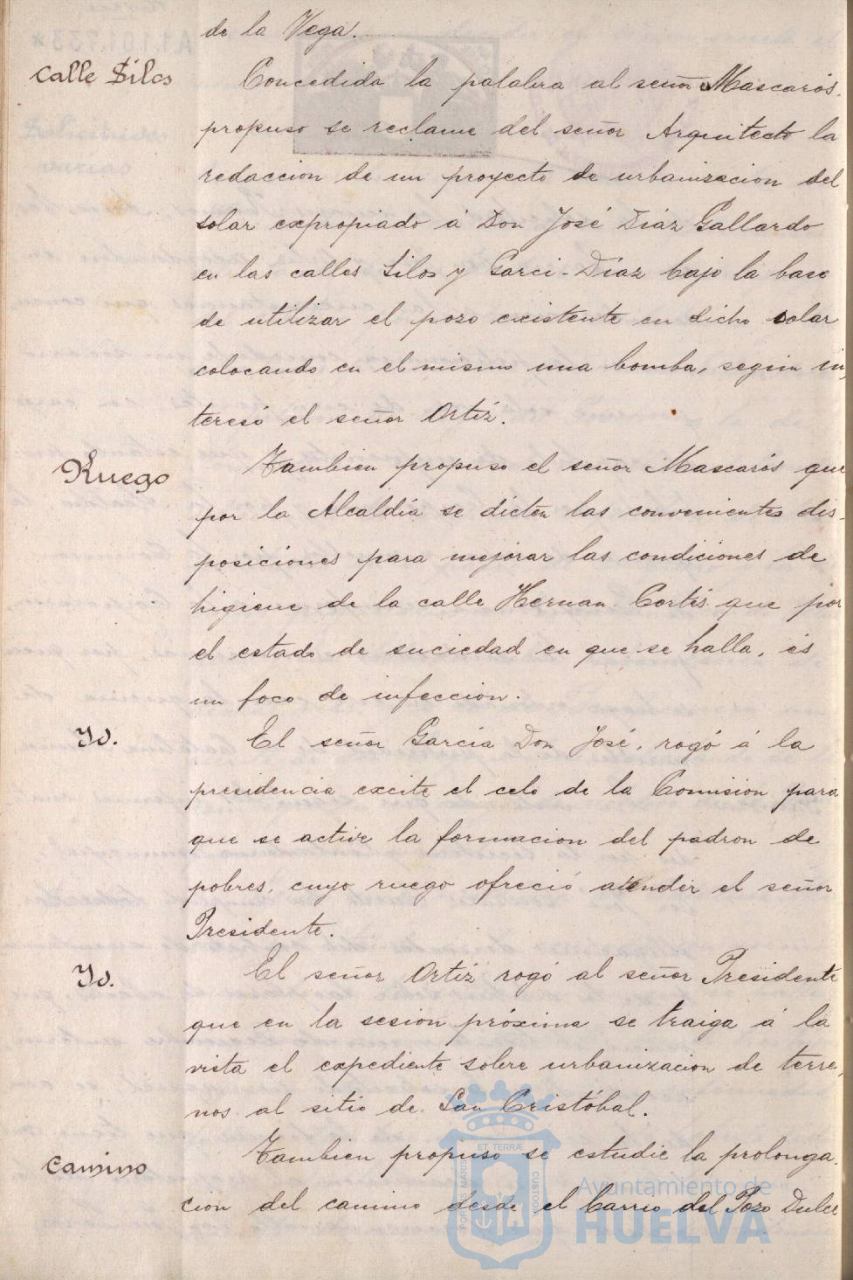 de la Vega.
Calle Silos
Concedida la palabra al señor Mascarós,
propuso se reclame del señor Arquitecto la
redaccion de un proyecto de urbanizacion del
solar expropiado á Don José Diáz Gallardo
en las calles Silos y Garci-Díaz bajo la base
de utilizar el pozo existente en dicho solar
colocando en el mismo una bomba, segun in-
teresó el señor Ortíz.
Ruego
Tambien propuso el señor Mascarós que
por la Alcaldía se dicten las convenientes dis-
posiciones para mejorar las condiciones de
higiene de la calle Hernan Cortés que por
el estado de suciedad en que se halla, és
un foco de infeccion.
Yd.
El señor García Don José, rogó á la
presidencia excite el celo de la Comision para
que se active la formacion del padron de
pobres, cuyo ruego ofreció atender el señor
Presidente.
Yd.
El señor Ortíz rogó al señor Presidente
que en la sesion próxima se traiga á la
vista el expediente sobre urbanizacion de terre-
nos al sitio de San Cristóbal.
Camino
Tambien propuso se estudie la prolonga-
cion del camino desde el barrio del Pozo Dulce
ET TERRÆ
PORTUS MARIS
CUSTODIA
Ayuntamiento de
HUELVA